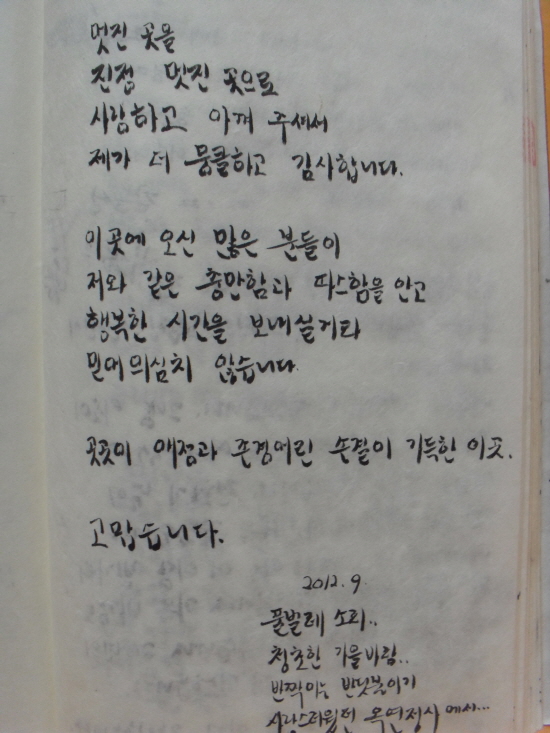 멋진 곳을
진정 멋진 곳으로
사랑하고 아껴 주셔서
제가 더 뭉클하고 감사합니다.
이곳에 오신 많은 분들이
저와 같은 충만함과 따스함을 안고
행복한 시간을 보내실거라
믿어의심치 않습니다.
곳곳이 애정과 존경어린 손길이 가득한 이곳.
고맙습니다.
2012. 9.
풀벌레 소리..
청초한 가을바람..
반짝이는 반딧불이가
사랑스러웠던 옥연정사에서...